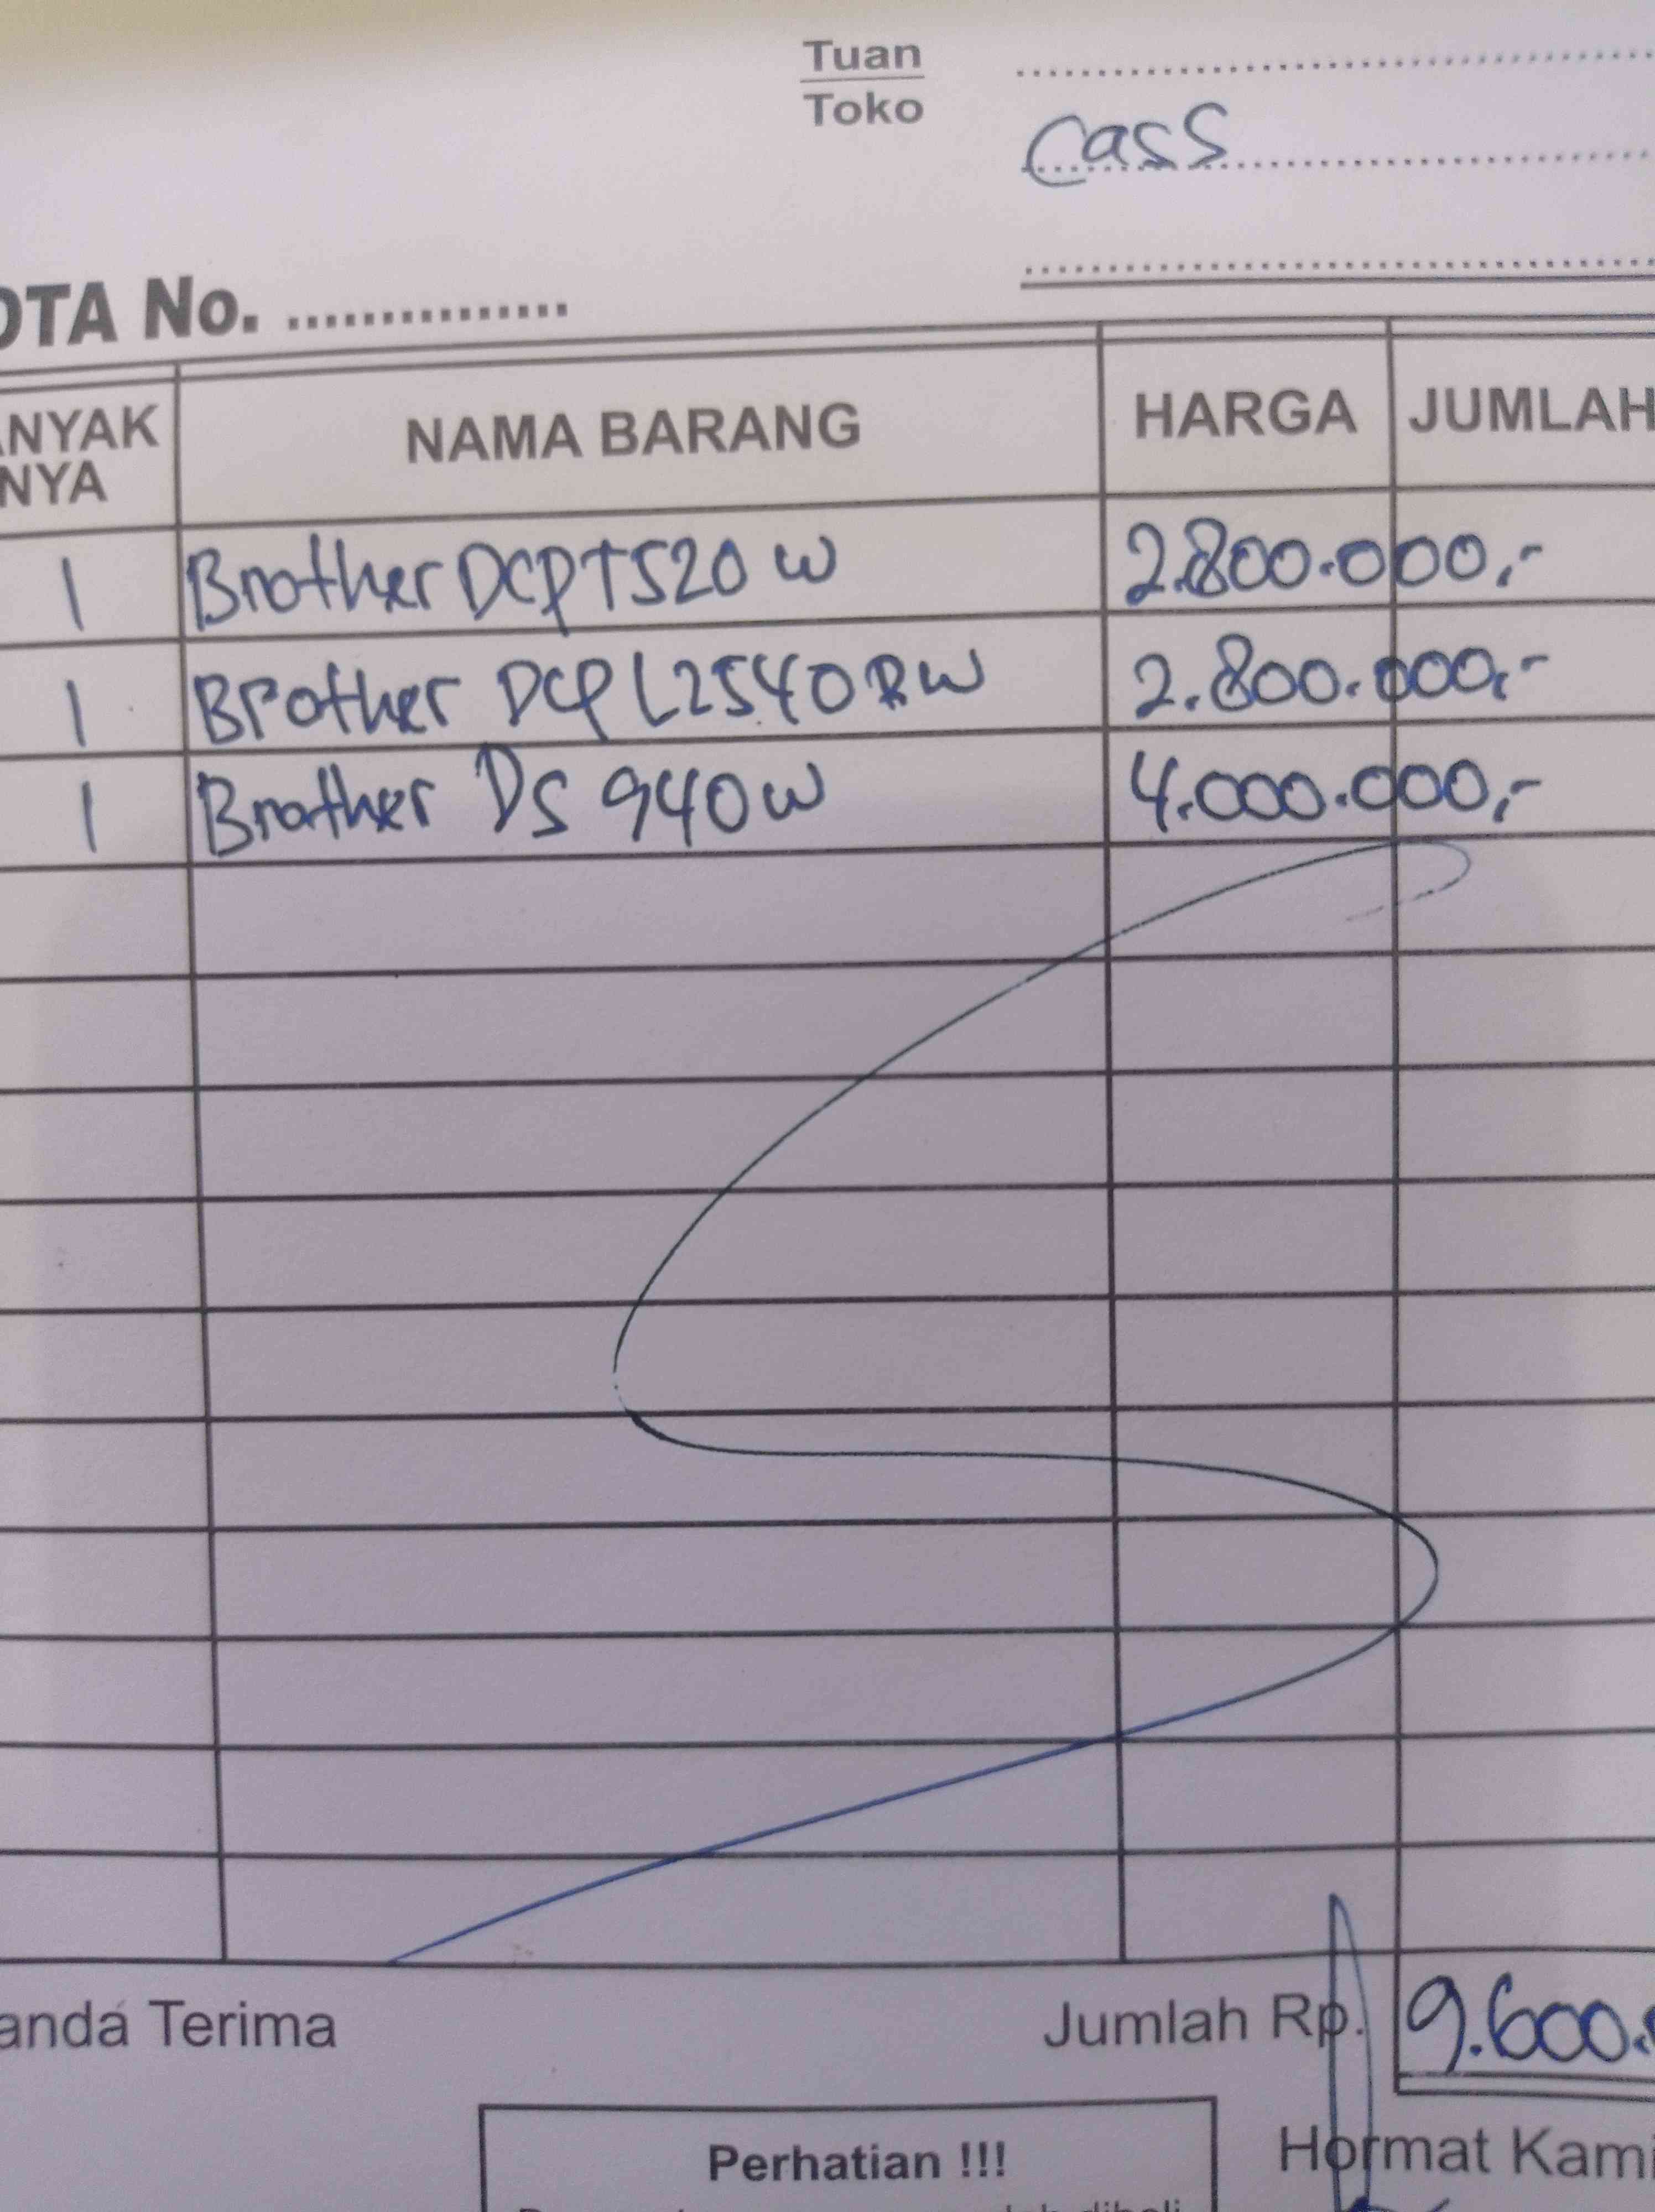 Tuan
Toko
Cass
OTA No. ...............
ANYAK
NYA
NAMA BARANG
HARGA
JUMLAH
1 Brother DCPT520W 2.800.000,-
1 Brother DCP L2540 RW 2.800.000,-
1 Brother DS 940W 4.000.000,-
anda Terima
Jumlah Rp. 9.600.
Perhatian !!!
Hormat Kami